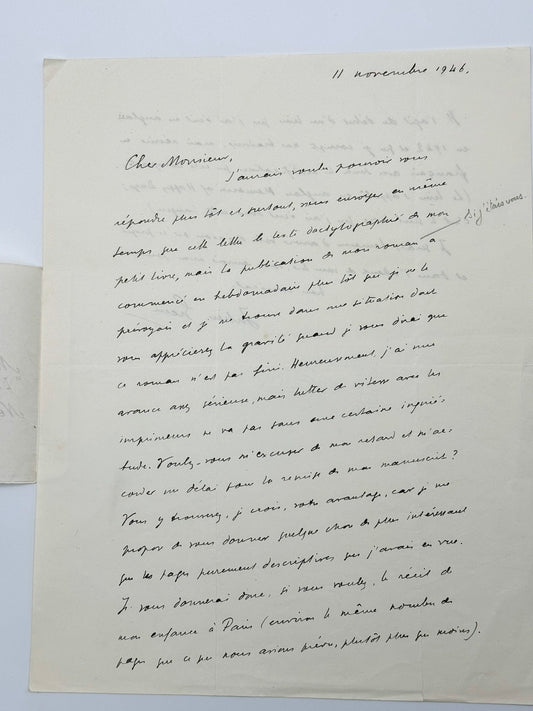 11 novembre 1946.
Cher Monsieur,
J'aurais voulu pouvoir vous
répondre plus tôt et, surtout, vous envoyer en même
temps que cette lettre le texte dactylographié de mon
Si j'étais vous.
petit livre, mais la publication de mon roman a
commencé en hebdomadaire plus tôt que je ne le
prévoyais et je me trouve dans une situation dont
vous apprécierez la gravité quand je vous dirai que
ce roman n'est pas fini. Heureusement, j'ai une
avance assez sérieuse, mais lutter de vitesse avec les
imprimeurs ne va pas sans une certaine inquié-
tude. Voulez-vous m'excuser de mon retard et m'ac-
corder un délai pour la remise de mon manuscrit?
Vous y trouverez, je crois, votre avantage, car je me
propose de vous donner quelque chose de plus intéressant
que les pages purement descriptives que j'avais en vue.
Je vous donnerai donc, si vous voulez, le récit de
mon enfance à Paris (environ le même nombre de
pages que ce que nous avions prévu, plutôt plus que moins).